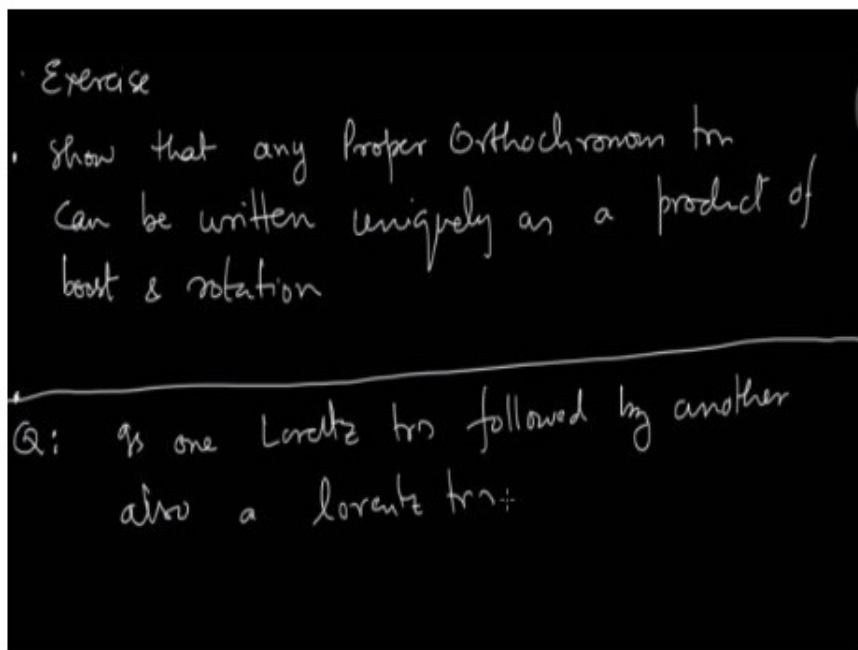 Exercise
. Show that any Proper Orthochronom trn
can be written uniquely as a product of
boost & rotation
Q: Is one Lorentz trn followed by another
also a lorentz trn